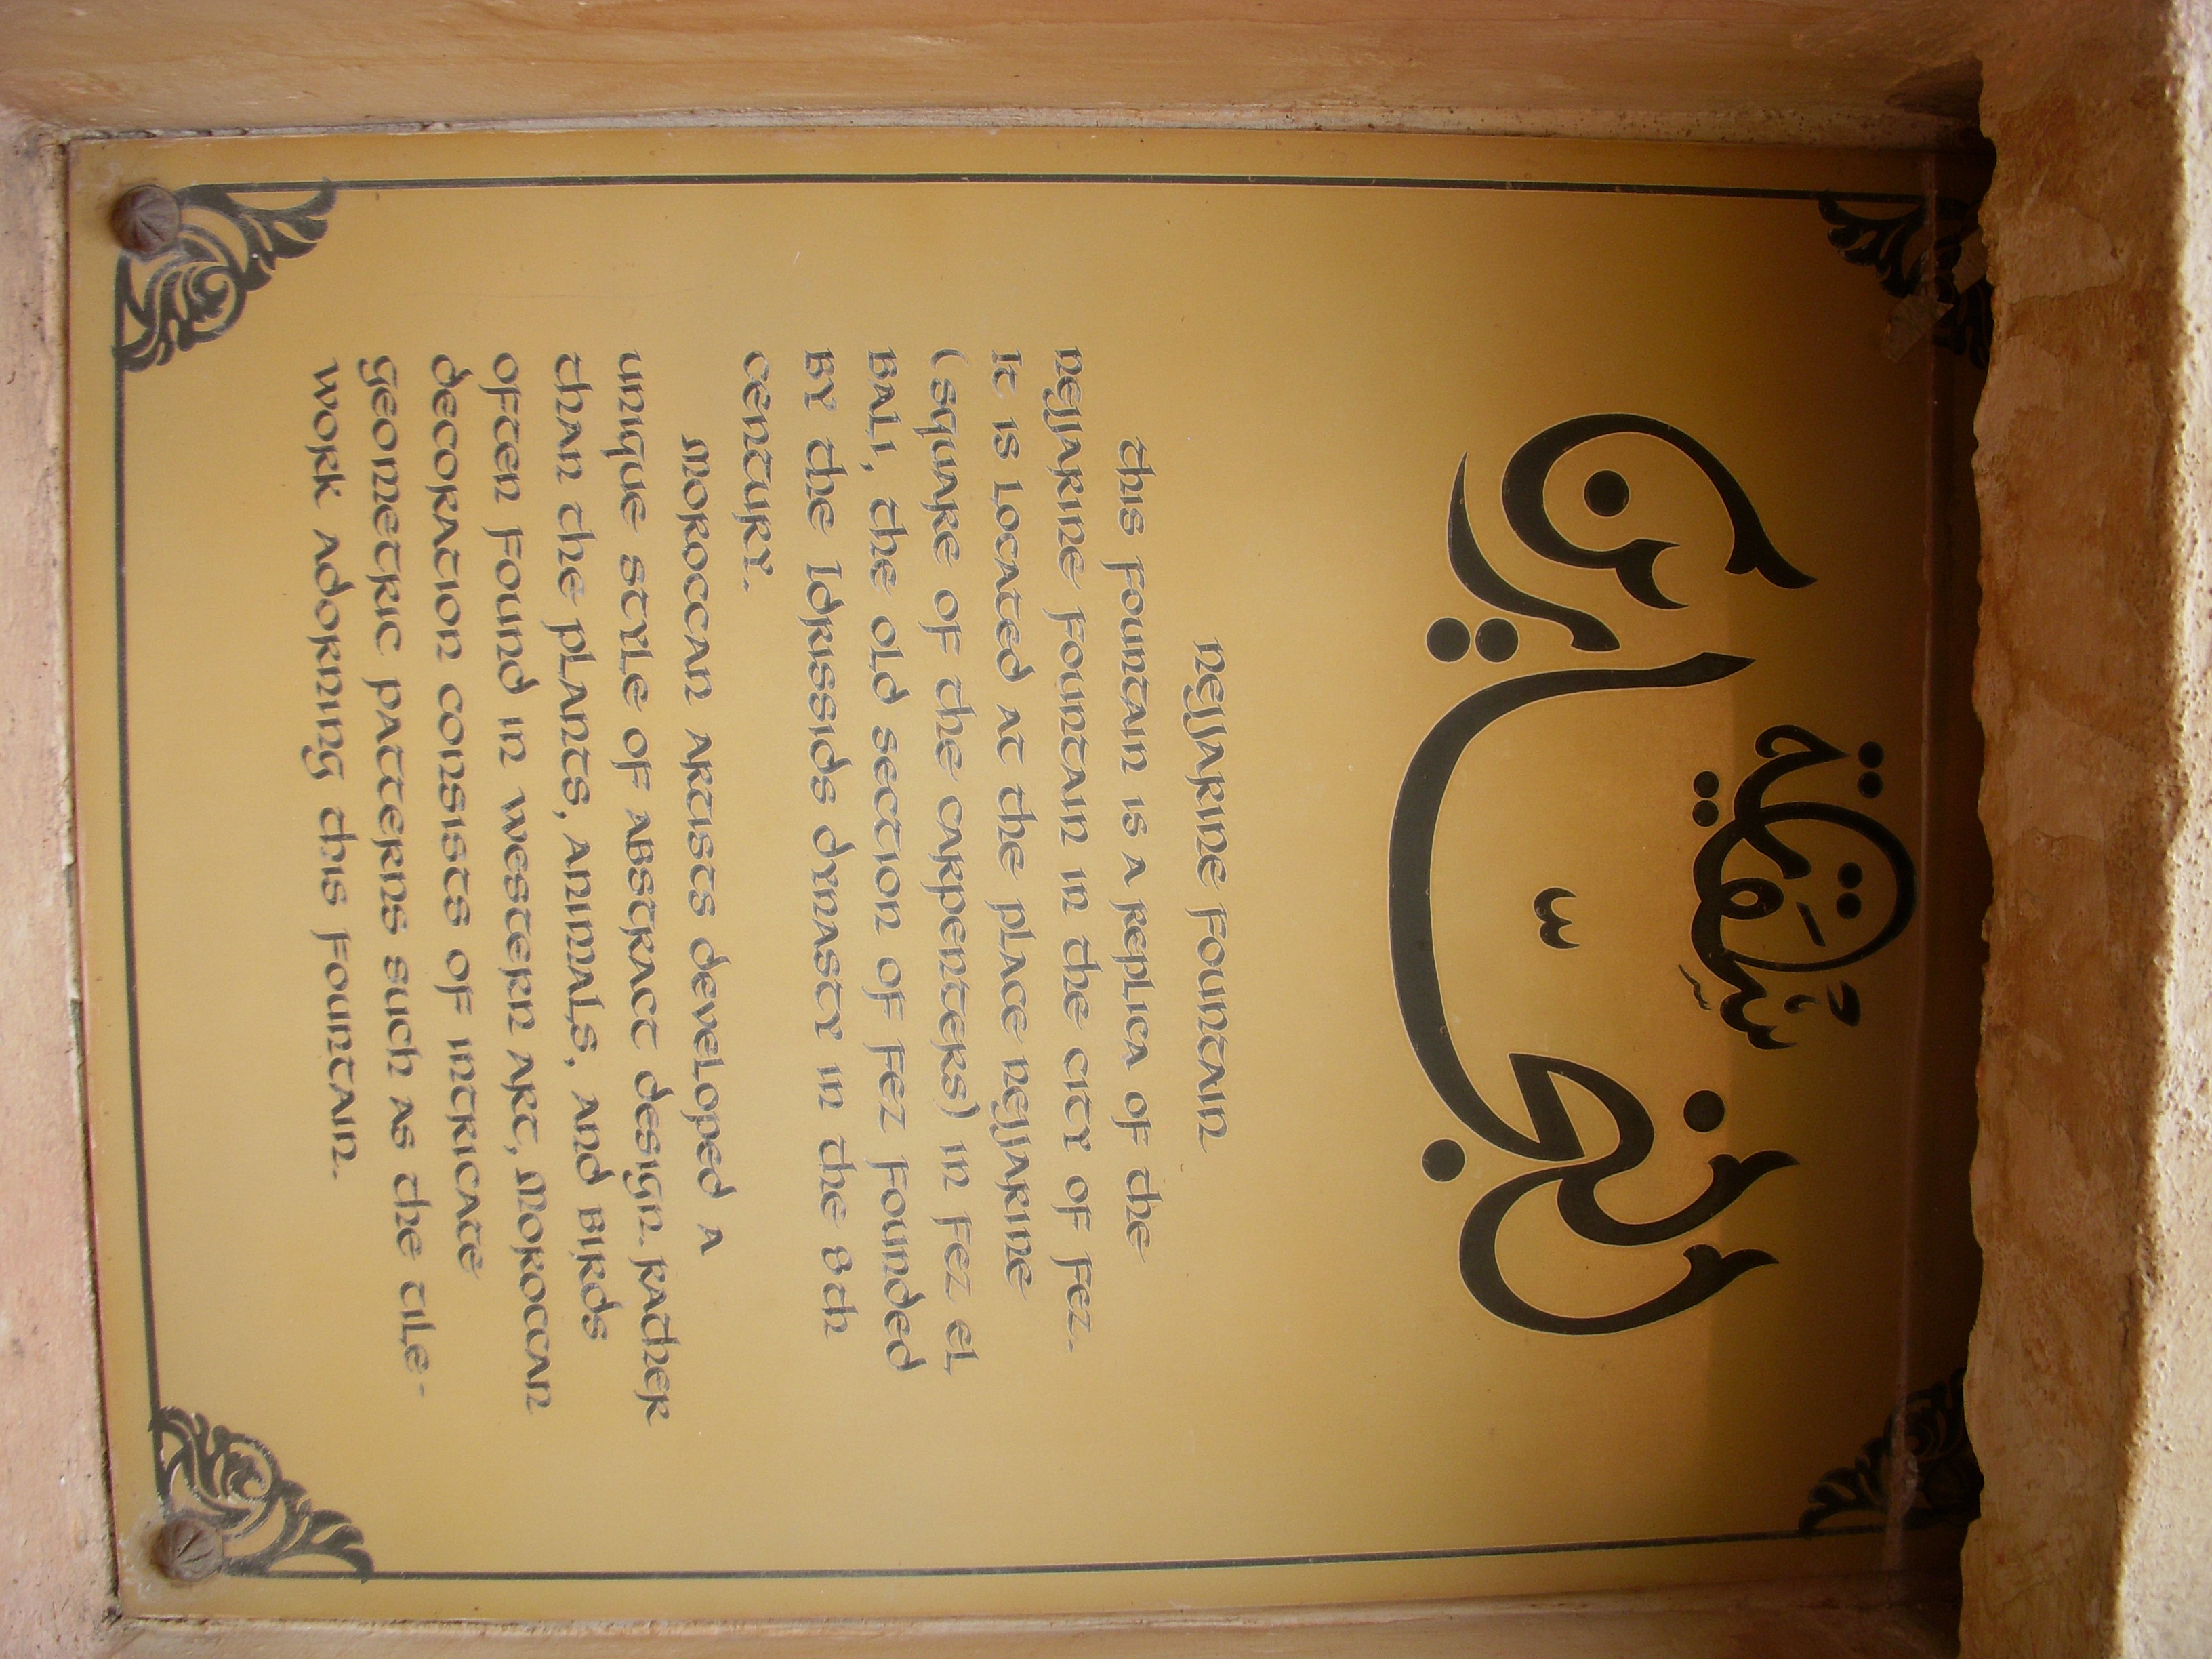 سقاية
النجارين
Nejjarine Fountain
This fountain is a replica of the
Nejjarine Fountain in the city of Fez.
It is located at the Place Nejjarine
(Square of the Carpenters) in Fez El
Bali, the old section of Fez founded
by the Idrissids dynasty in the 8th
century.
Moroccan artists developed a
unique style of abstract design. Rather
than the plants, animals, and birds
often found in Western art, Moroccan
decoration consists of intricate
geometric patterns such as the tile-
work adorning this fountain.